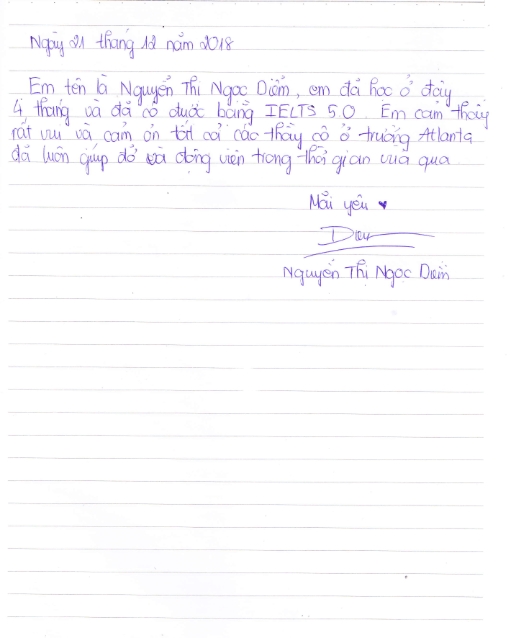 Ngày 21 tháng 12 năm 2018
Em tên là Nguyễn Thị Ngọc Diễm, em đã học ở đây
4 tháng và đã có được bằng IELTS 5.0. Em cảm thấy
rất vui và cảm ơn tất cả các thầy cô ở trường Atlanta
đã luôn giúp đỡ và động viên trong thời gian vừa qua
Mãi yêu ♥
Diễm
Nguyễn Thị Ngọc Diễm